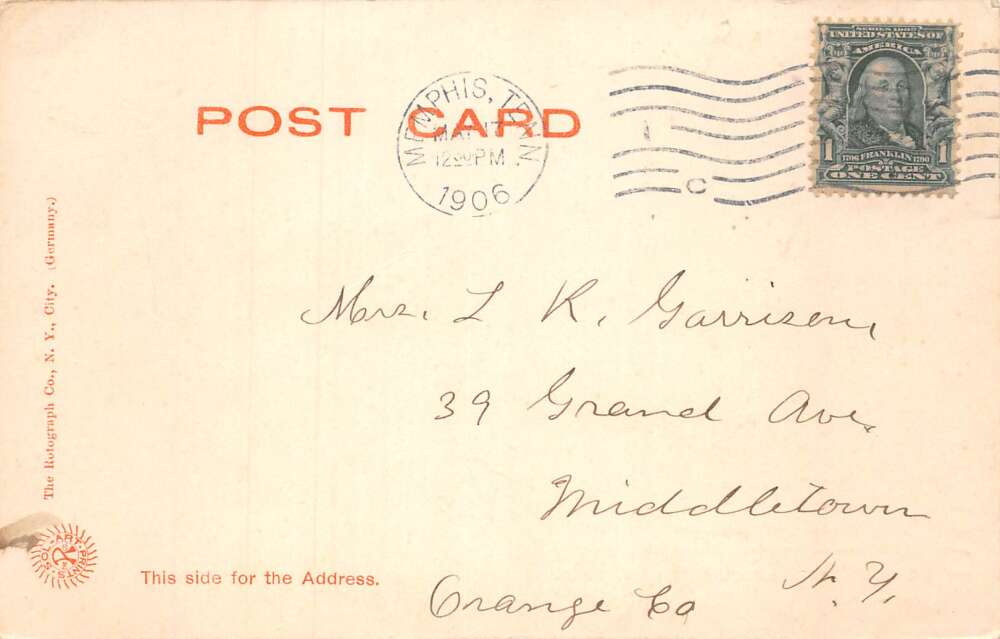 SERIES 1902
UNITED STATES OF
AMERICA
1 1706 FRANKLIN 1790 1
POSTAGE
ONE CENT
MEMPHIS, TENN
MAY 17
12 00 PM
1906
C
POST CARD
Mrs. L K. Garrison,
39 Grand Ave,
Middletown
N. Y.
Orange Co
The Rotograph Co., N. Y., City. (Germany.)
SOL-ART PRINTS
This side for the Address.